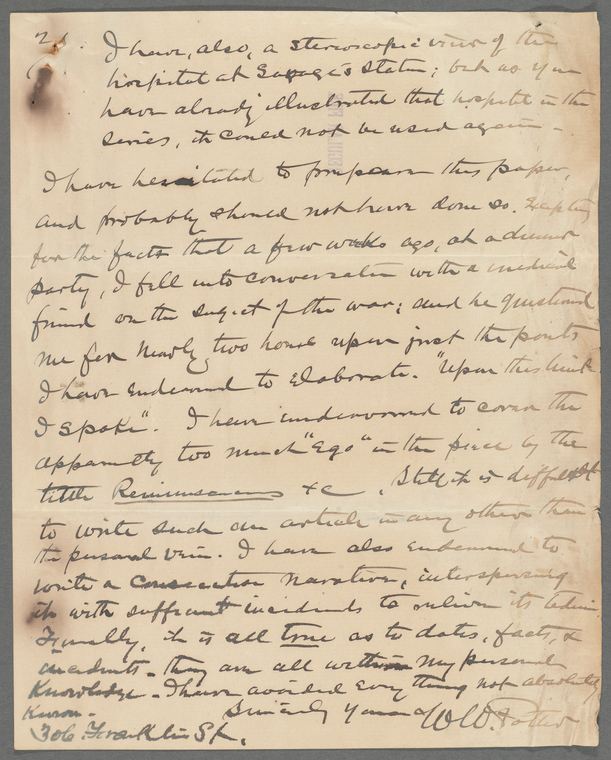 2).
I have, also, a stereoscopic view of the
hospital at Savage's Station; but as you
have already illustrated that hospital in the
series, it could not be used again -
I have hesitated to prepare this paper,
and probably should not have done so. Excepting
for the facts that a few weeks ago, at a dinner
party, I fell into conversation with a medical
friend on the subject of the war; and he questioned
me for nearly two hours upon just the points
I have endeavored to elaborate. "Upon this hint
I spoke". I have endeavored to cover the
apparently too much "Ego" in the piece by the
title Reminiscences &c. Still, it is difficult
to write such an article in any other than
the personal vein. I have also endeavored to
write a consecutive narrative, interspersing
it with sufficient incidents to relieve its tedium.
Finally, it is all true as to dates, facts, &
incidents - they are all within my personal
knowledge - I have avoided everything not absolutely
known -
Sincerely yours W W. Potter
306 Franklin St.